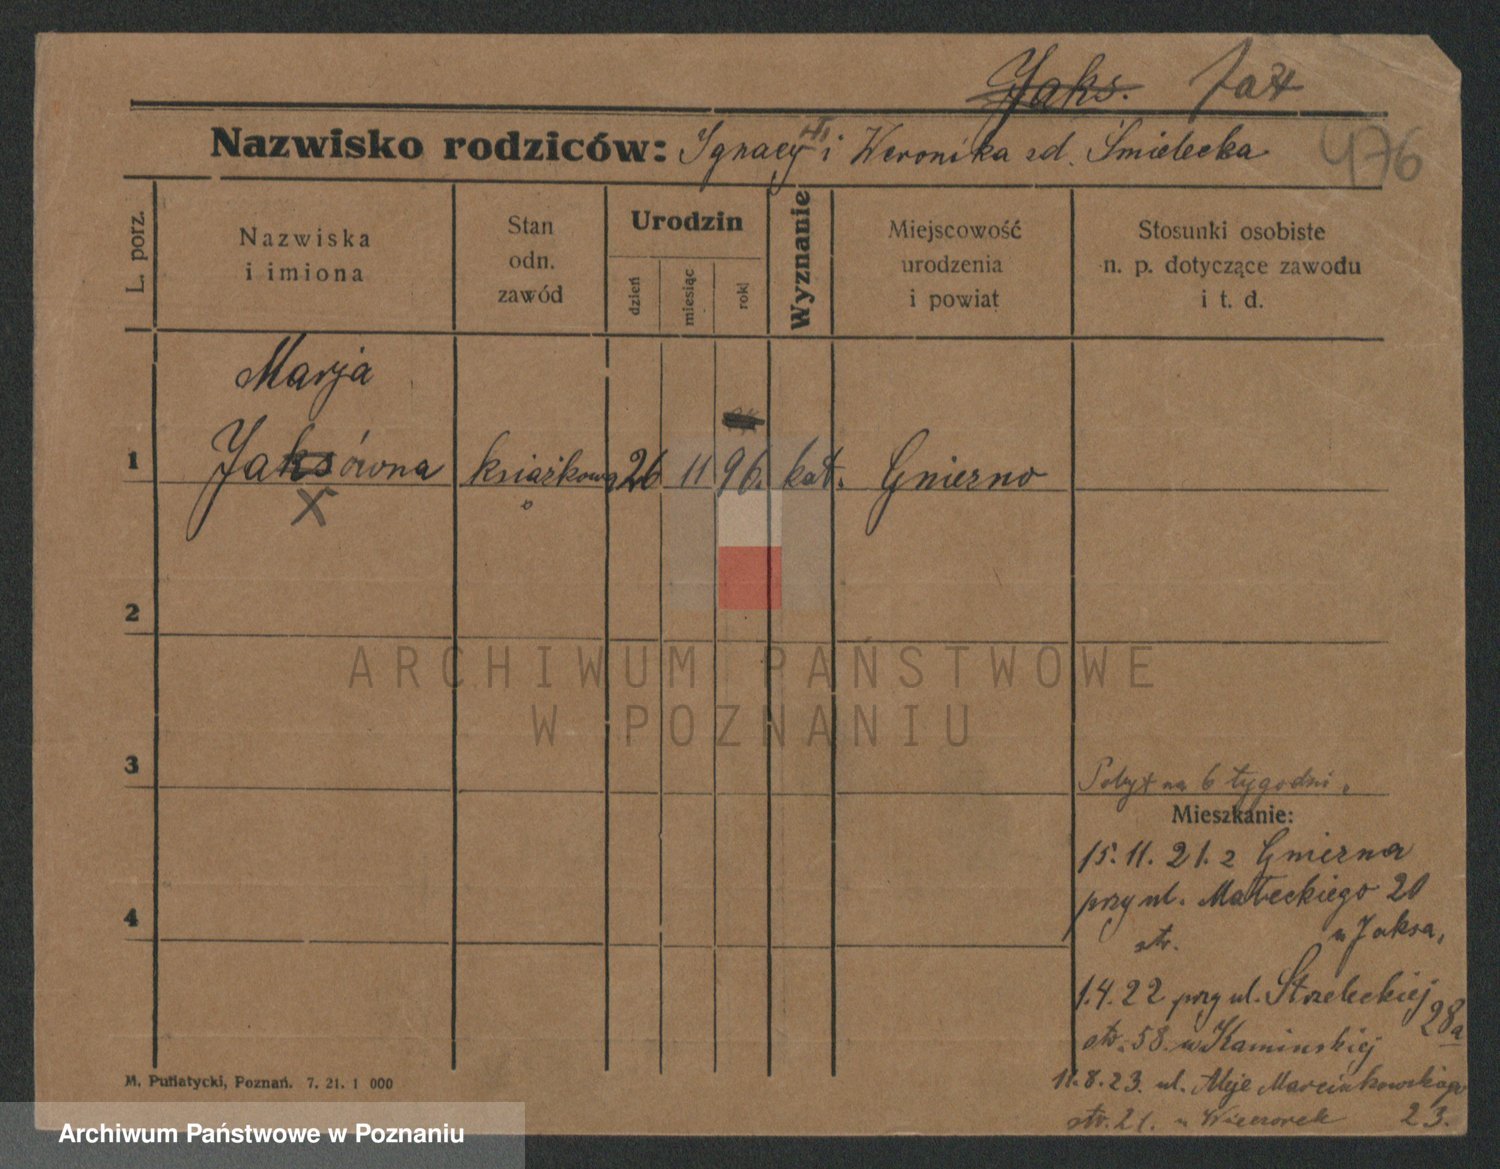 Jaks. Jax
Nazwisko rodziców: Ignacy i Weronika zd. Śmielecka
476
L. porz.
Nazwiska
i imiona
Stan
odn.
zawód
Urodzin
dzień
miesiąc
rok
Wyznanie
Miejscowość
urodzenia
i powiat
Stosunki osobiste
n. p. dotyczące zawodu
i t. d.
Marja
1 Jaksówna książkowa 26 11 96. kat. Gniezno
X
2
ARCHIWUM PAŃSTWOWE
W POZNANIU
3
Pobyt na 6 tygodni.
Mieszkanie:
15. 11. 21. z Gniezna
przy ul. Małeckiego 20
str. u Jaksa,
4
1.4.22 przy ul. Strzeleckiej 28a
str. 58. u Kaminskiej
11.8.23. ul. Aleje Marcinkowskiego 23.
str. 21. u Wieczorek
M. Putiatycki, Poznań. 7. 21. 1 000
Archiwum Państwowe w Poznaniu